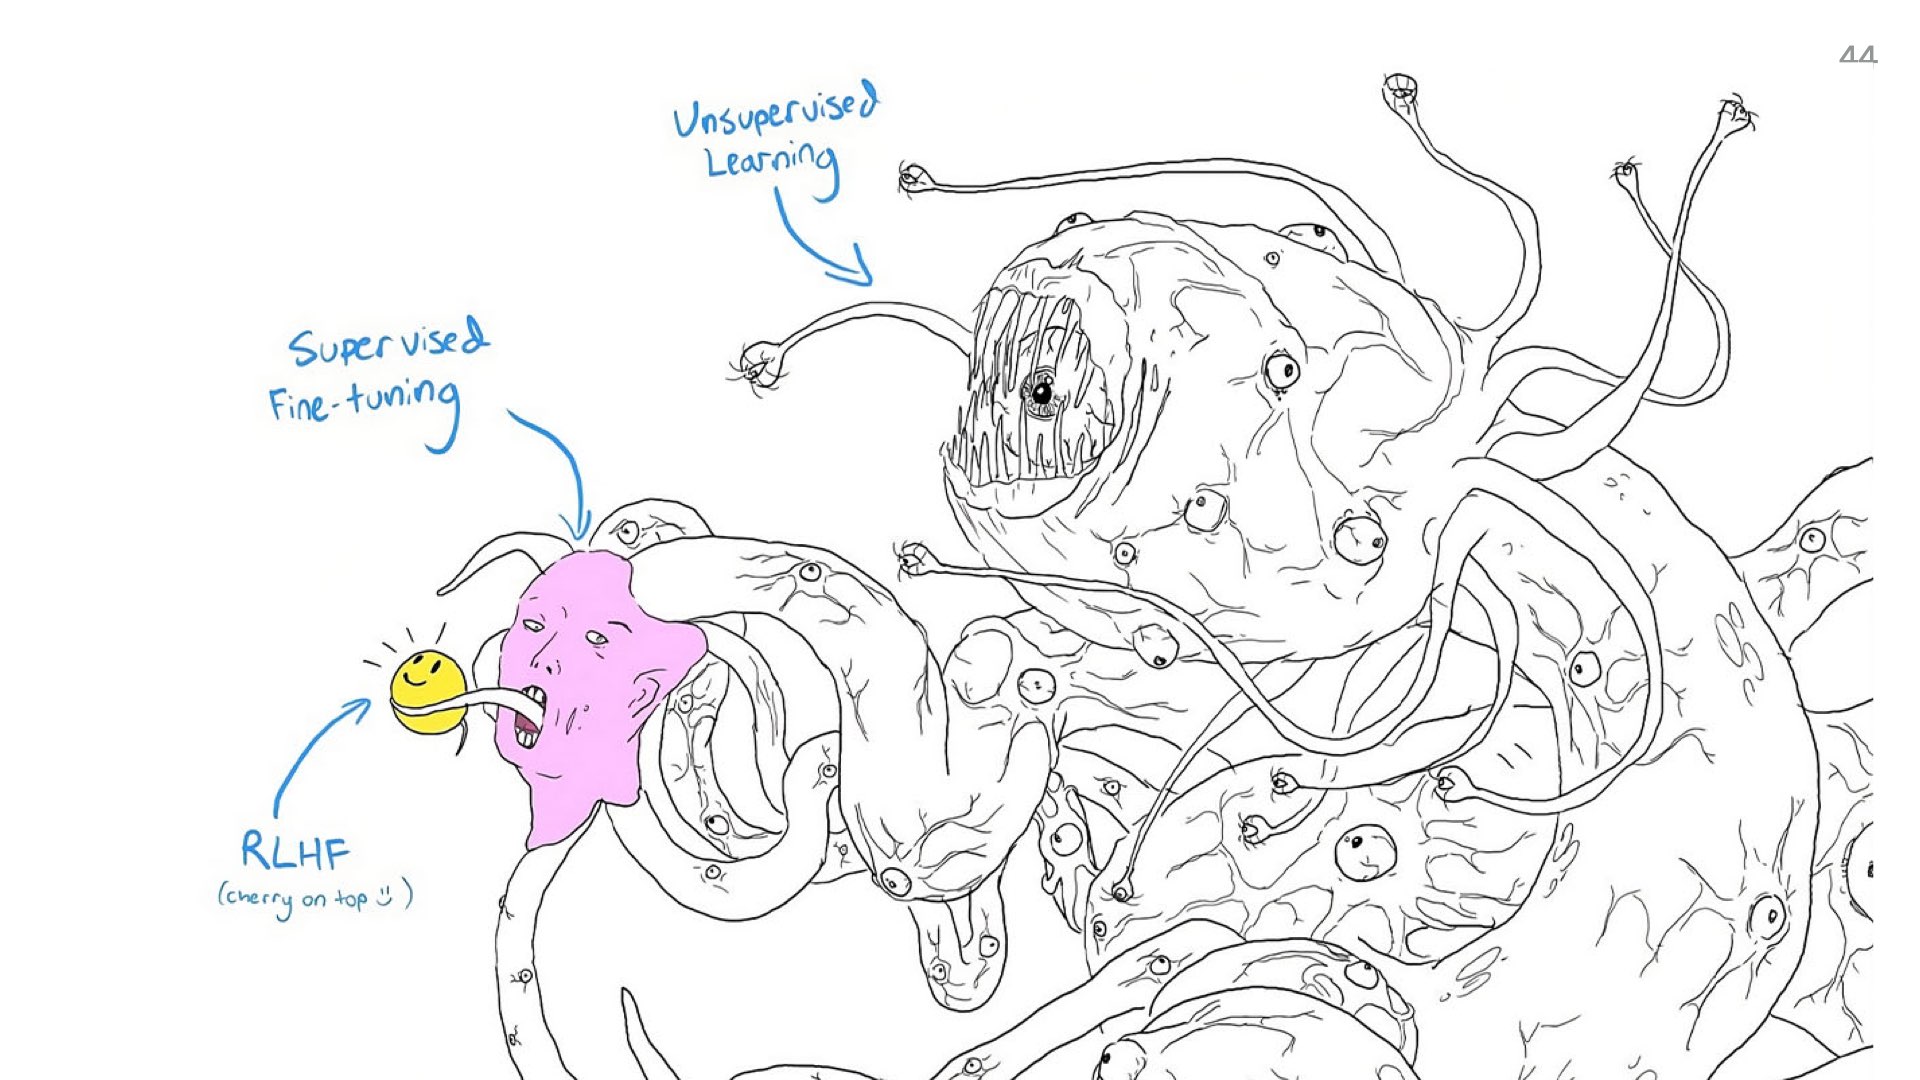 44
Unsupervised
Learning
Supervised
Fine-tuning
RLHF
(cherry on top :))